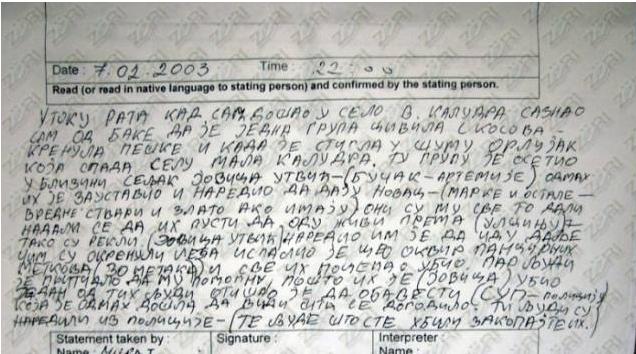 Date : 7.02.2003 Time : 22:00
Read (or read in native language to stating person) and confirmed by the stating person.
У ТОКУ РАТА КАД САМ ДОШАО У СЕЛО В. КАЛУДРА САЗНАО
САМ ОД БАКЕ ДА ЈЕ ЈЕДНА ГРУПА ЦИВИЛА С КОСОВА -
КРЕНУЛА ПЕШКЕ И КАДА ЈЕ СТИГЛА У ШУМУ ОРЛУЈАК
КОЈА СПАДА СЕЛУ МАЛА КАЛУДРА, ТУ ГРУПУ ЈЕ ОСЕТИО
У БЛИЗИНИ СЕЉАК ЈОВИЦА УТВИЋ - (БУЧАК - АРТЕМИЈЕ) ОДМАХ
ИХ ЈЕ ЗАУСТАВИО И НАРЕДИО ДА ДАЈУ НОВАЦ - (МАРКЕ И ОСТАЛЕ -
ВРЕДНЕ СТВАРИ И ЗЛАТО АКО ИМАЈУ) ОНИ СУ МУ СВЕ ТО ДАЛИ
НАДАЛИ СЕ ДА ИХ ПУСТИ ДА ОДУ ЖИВИ ПРЕМА (УЛЦИЊУ) -
ТАКО СУ РЕКЛИ. (ЈОВИЦА УТВИЋ) НАРЕДИО ИМ ЈЕ ДА ИДУ ДАЉЕ
ЧИМ СУ ОКРЕНУЛИ ЛЕЂА ИСПАЛИО ЈЕ ЦЕО ОКВИР ПАНЦИРНИХ
МЕТКОВА (30 МЕТАКА) И СВЕ ИХ УБИО ПАР ЉУДИ
ЈЕ ДА МУ ПОШТО ИХ ЈЕ (ЈОВИЦА) УБИО
ЈЕДАН ОД ТИХ ЉУДИ ОТИШАО ЈЕ ДА ОБАВЕСТИ (СУП - ПОЛИЦИЈУ)
КОЈА ЈЕ ОДМАХ ДОШЛА ДА ВИДИ ШТА СЕ ДОГОДИЛО (ТИ ЉУДИ СУ
НАРЕДИЛИ ИЗ ПОЛИЦИЈЕ - (ТЕ ЉУДЕ ШТО СТЕ УБИЛИ ЗАКОПАЈТЕ ИХ.)
Statement taken by : Signature : Interpreter :
Name : Name :